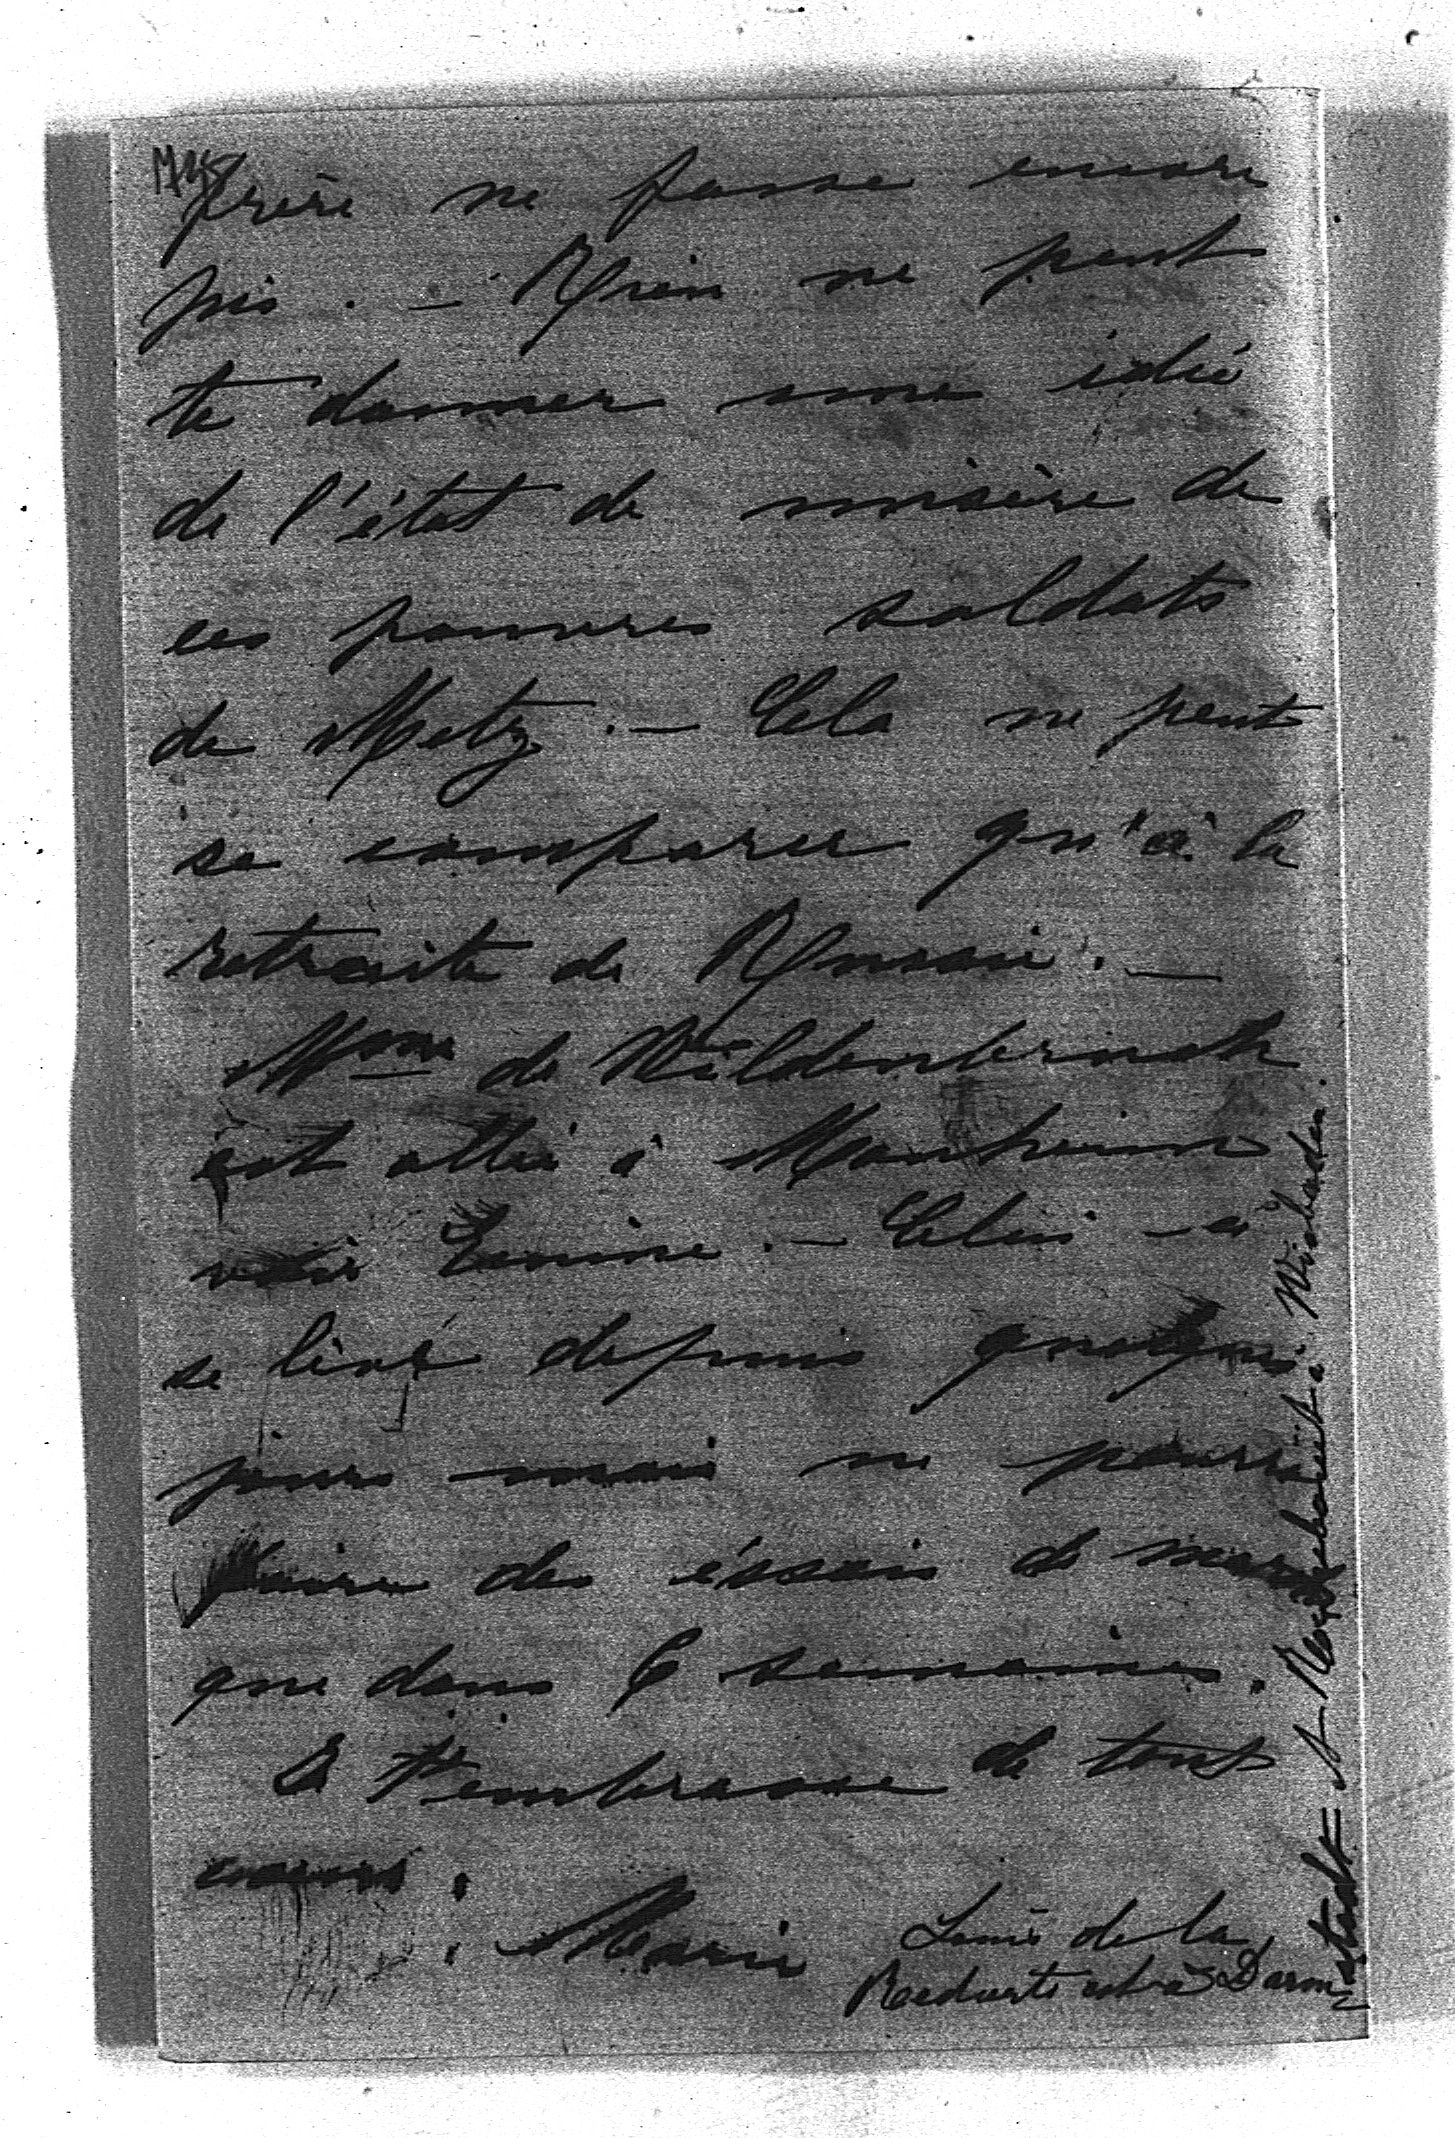 frère ne fasse encore
pis. — Rien ne peut
te donner une idée
de l'état de misère de
ces pauvres soldats
de Metz. — Cela ne peut
se comparer qu'à la
retraite de Russie. —
Mme de Wildenbruch
est allée à Manheim
voir . — Celui-ci
se lève depuis quelques
jours mais ne pourra
faire des éssais de marche
que dans 6 semaines.
Je t'embrasse de tout
coeur.
Marie
Louis de la
est à Darm
stadt — et à Wiesbaden.